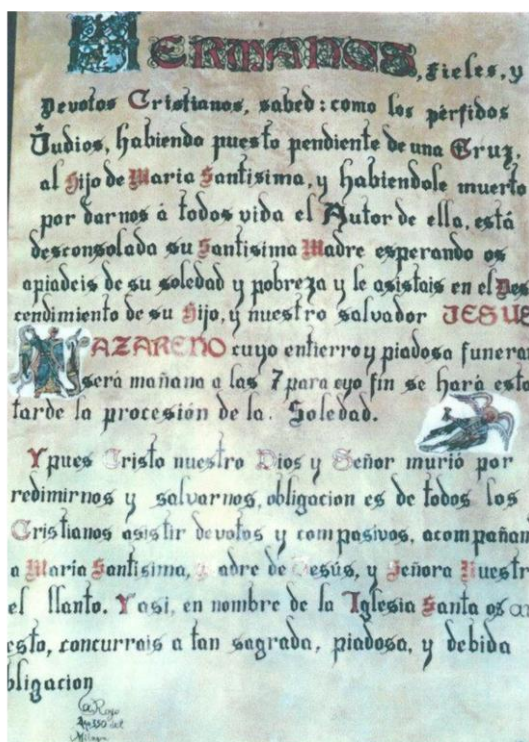 HERMANOS, fieles, y
Devotos Cristianos, sabed: como los pérfidos
Judios, habiendo puesto pendiente de una Cruz,
al Hijo de Maria Santisima, y habiendole muerto
por darnos á todos vida el Autor de ella, está
desconsolada su Santisima Madre esperando os
apiadeis de su soledad y pobreza y le asistais en el Des
cendimiento de su Hijo, y nuestro salvador JESUS
NAZARENO cuyo entierro y piadosa funera
será mañana a las 7 para cyo fin se hará esta
tarde la procesión de la Soledad.
Y pues Cristo nuestro Dios y Señor murió por
redimirnos y salvarnos, obligacion es de todos los
Cristianos asistir devotos y compasivos, acompañan
a Maria Santisima, adre de Jesús, y Señora Nuestr
el llanto. Y asi, en nombre de la Iglesia Santa os
esto, concurrais a tan sagrada, piadosa, y debida
bligacion